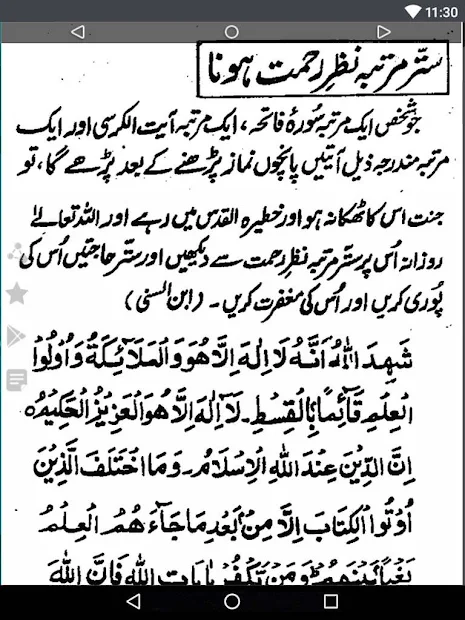 11:30
ستّر مرتبہ نظرِ رحمت ہونا
جو شخص ایک مرتبہ سُورۂ فاتحہ، ایک مرتبہ آیت الکرسی اور ایک
مرتبہ مندرجہ ذیل آیتیں پانچوں نماز پڑھنے کے بعد پڑھے گا، تو
جنت اس کا ٹھکانہ ہو اور خطیرہ القدس میں رہے اور اللہ تعالےٰ
روزانہ اُس پر ستّر مرتبہ نظرِ رحمت سے دیکھیں اور ستّر حاجتیں اُس کی
پوری کریں اور اُس کی مغفرت کریں۔ (ابن السنی)
شَهِدَ اللهُ اَنَّهُ لَا اِلٰهَ اِلَّا هُوَ وَالْمَلَآئِكَةُ وَاُولُوا
الْعِلْمِ قَآئِمًا بِالْقِسْطِ۔ لَآ اِلٰهَ اِلَّا هُوَ الْعَزِيْزُ الْحَكِيْمُ ہ
اِنَّ الدِّيْنَ عِنْدَ اللهِ الْاِسْلَامُ۔ وَمَا اخْتَلَفَ الَّذِيْنَ
اُوْتُوا الْكِتَابَ اِلَّا مِنْ بَعْدِ مَا جَآءَهُمُ الْعِلْمُ
بَغْيًا بَيْنَهُمْ وَمَنْ يَّكْفُرْ بِاٰيَاتِ اللهِ فَاِنَّ اللهَ